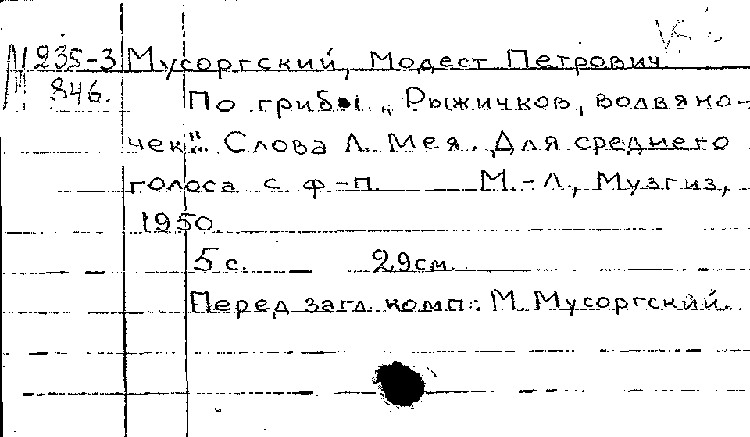 М 235-3 Мусоргский, Модест Петрович
846. По грибы „Рыжичков, волвяно-
чек“.. Слова Л. Мея. Для среднего
голоса с ф-п. М.-Л., Музгиз,
1950.
5 с. 29 см.
Перед загл. комп.: М. Мусоргский.